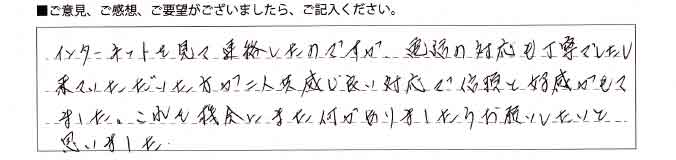 ■ご意見、ご感想、ご要望がございましたら、ご記入ください。
インターネットを見て連絡したのですが、電話の対応も丁寧でしたし
来ていただいた方が二人共感じ良い対応で信頼と好感がもて
ました。これを機会にまた何かありましたらお願いしたいと
思いました